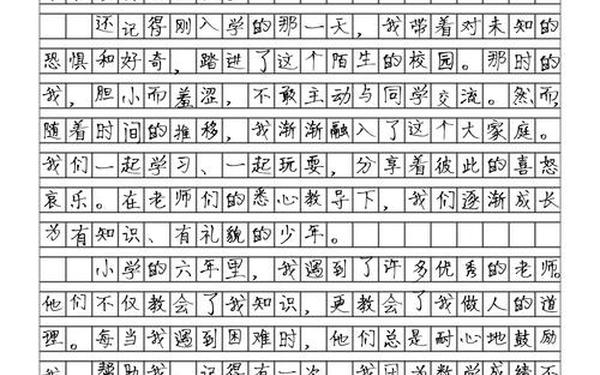 还记得刚入学的那一天，我带着对未知的
恐惧和好奇，踏进了这个陌生的校园。那时的
我，胆小而羞涩，不敢主动与同学交流。然而，
随着时间的推移，我渐渐融入了这个大家庭。
我们一起学习、一起玩耍，分享着彼此的喜怒
哀乐。在老师们的悉心教导下，我们逐渐成长
为有知识、有礼貌的少年。
小学的六年里，我遇到了许多优秀的老师。
他们不仅教会了我知识，更教会了我做人的道
理。每当我遇到困难时，他们总是耐心地鼓励
我、帮助我。记得有一次，我因为数学成绩不